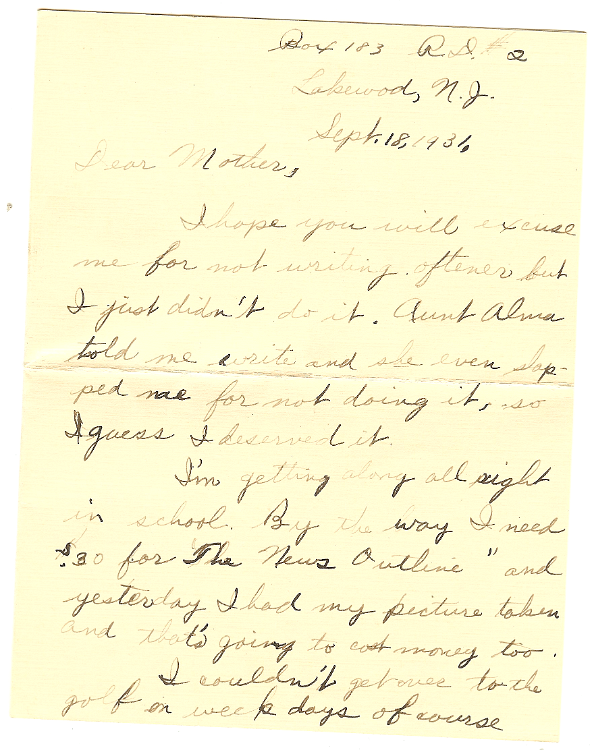 Box 183 R.D. #2
Lakewood, N.J.
Sept. 18, 1931,
Dear Mother,
I hope you will excuse
me for not writing oftener but
I just didn't do it. Aunt Alma
told me write and she even slap-
ped me for not doing it, so
I guess I deserved it.
I'm getting along all right
in school. By the way I need
$.30 for "The News Outline" and
yesterday I had my picture taken
and that's going to cost money too.
I couldn't get over to the
golf on week days of course